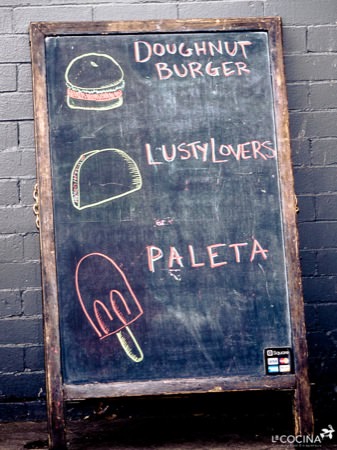 DOUGHNUT
BURGER
LUSTYLOVERS
PALETA
Square
VISA
LA COCINA